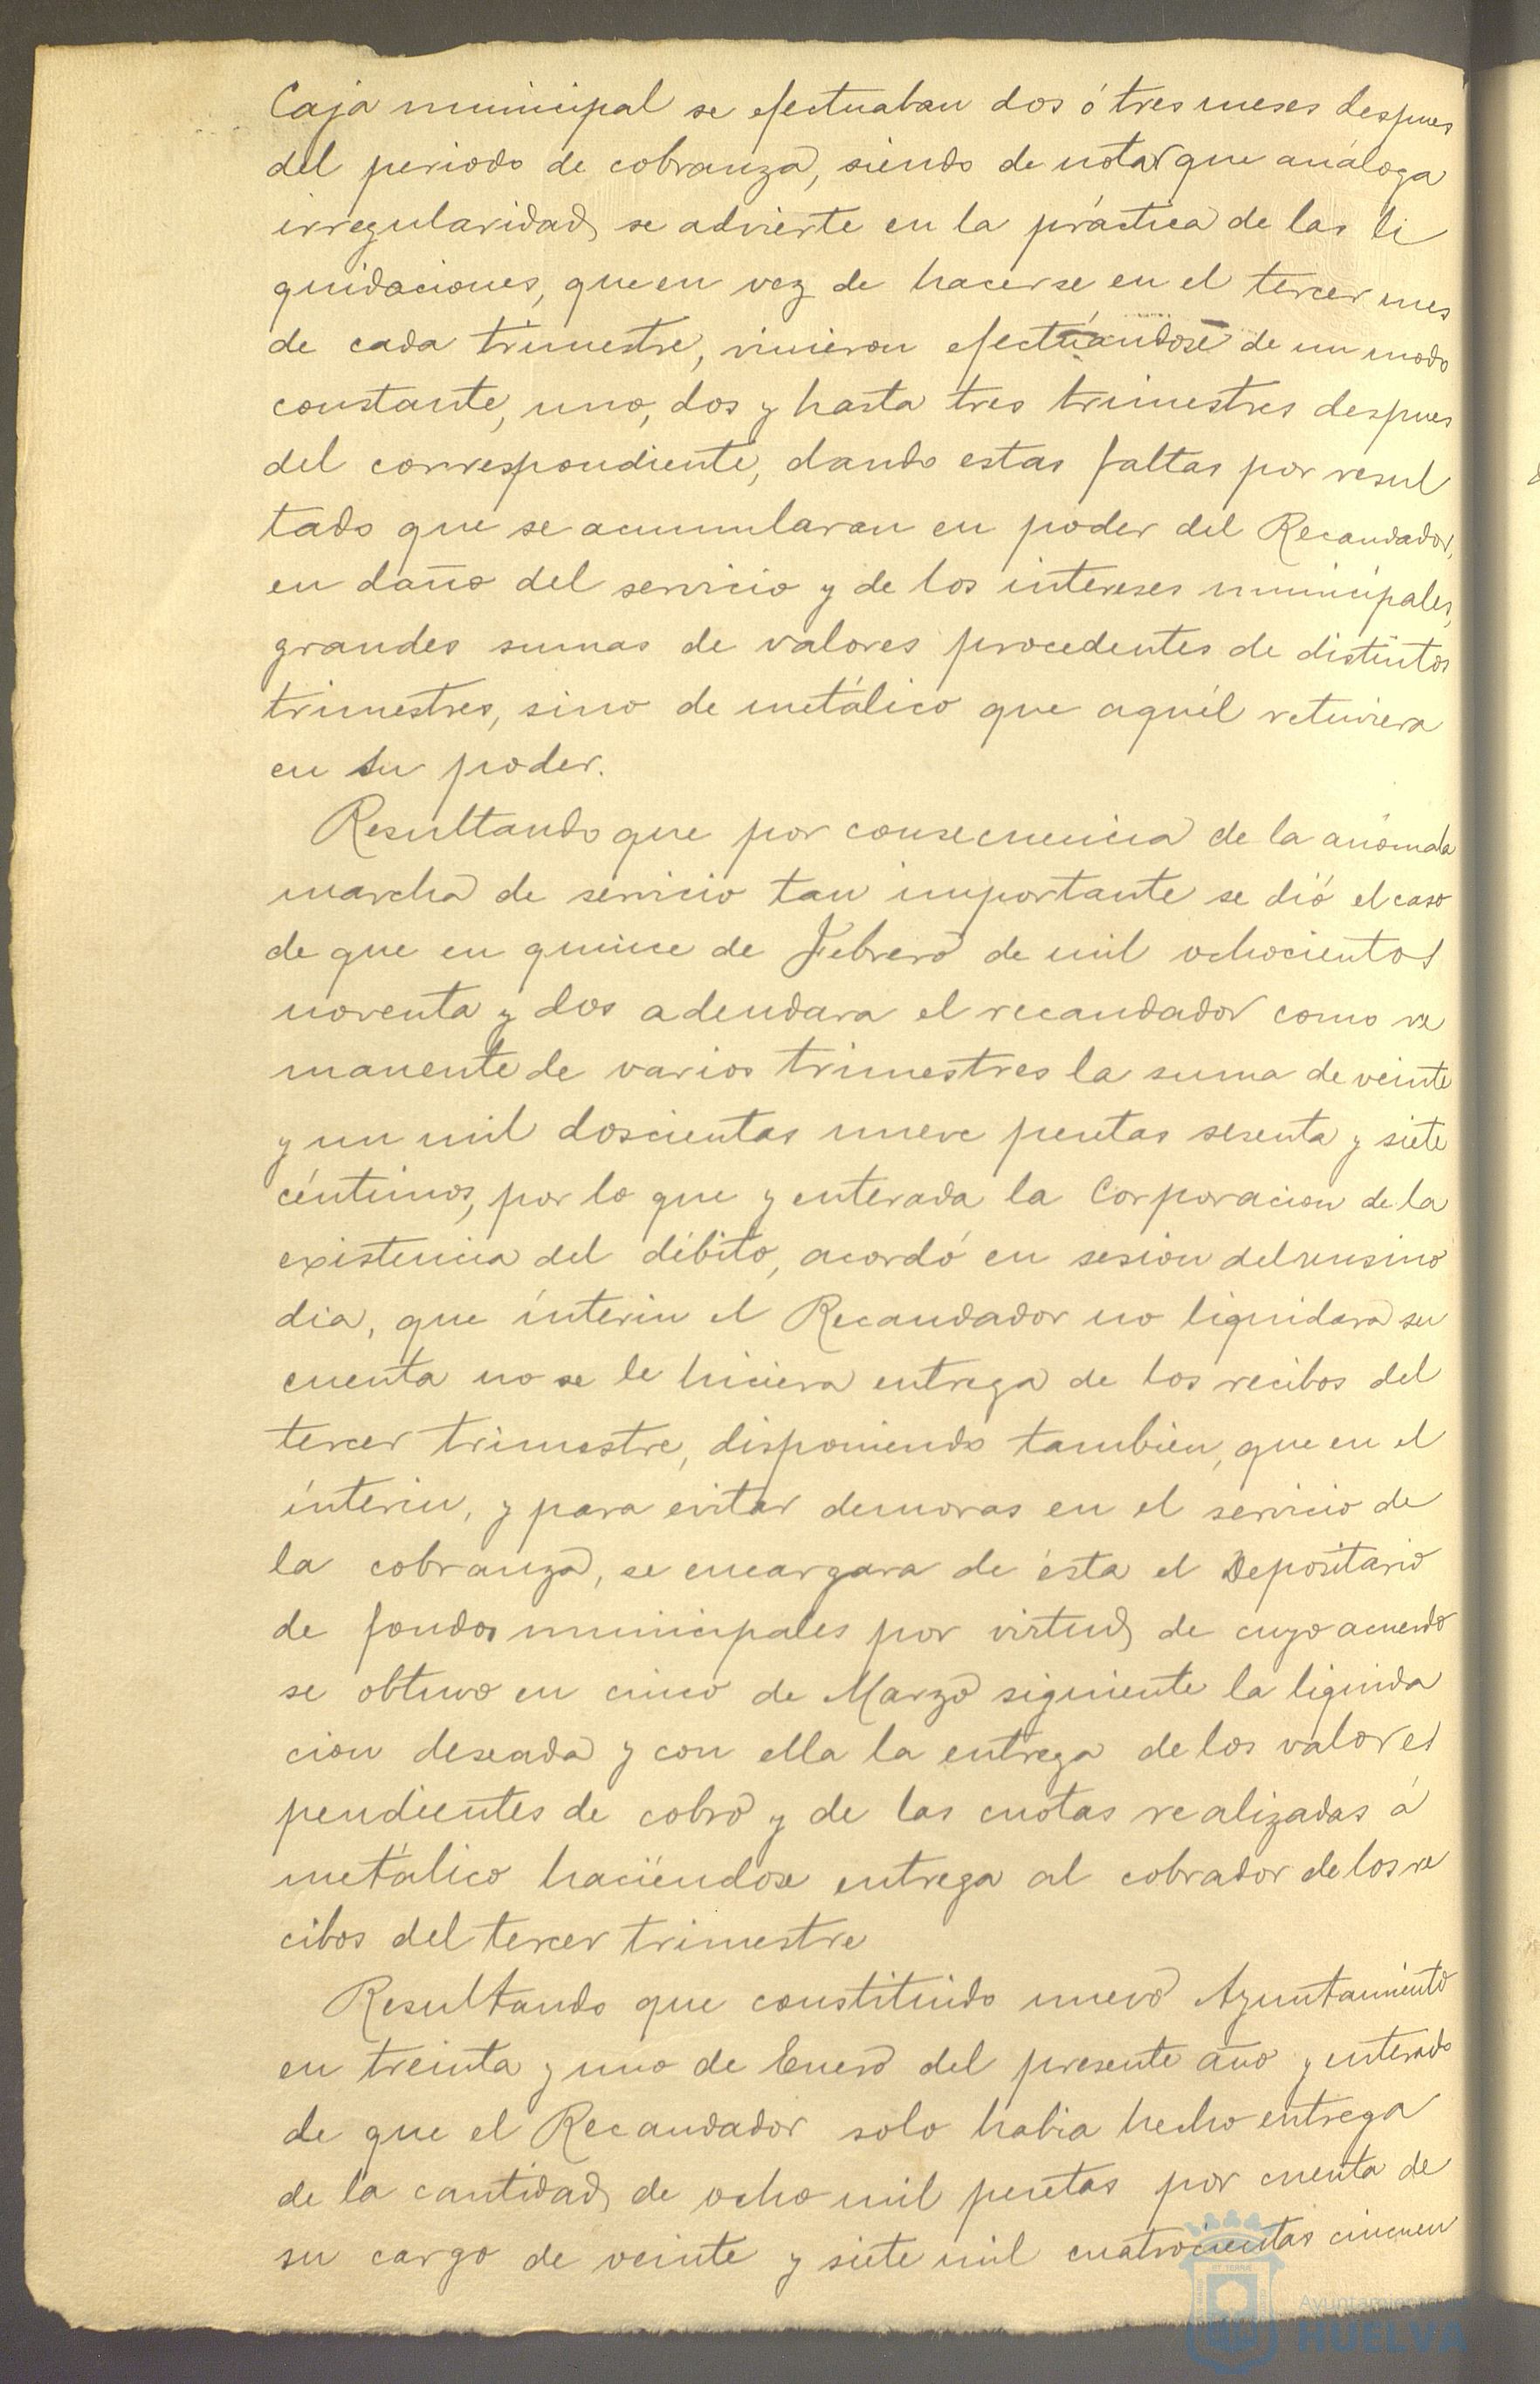 Caja municipal se efectuaban dos ó tres meses despues
del periodo de cobranza, siendo de notar que análoga
irregularidad se advierte en la práctica de las li
quidaciones, que en vez de hacerse en el tercer mes
de cada trimestre, vinieron efectuándose de un modo
constante, uno, dos y hasta tres trimestres despues
del correspondiente, dando estas faltas por resul
tado que se acumularan en poder del Recaudador,
en daño del servicio y de los intereses municipales,
grandes sumas de valores procedentes de distintos
trimestres, sino de metálico que aquél retuviera
en su poder.
Resultando que por consecuencia de la anómala
marcha de servicio tan importante se dió el caso
de que en quince de Febrero de mil ochocientos
noventa y dos adeudara el recaudador como re
manente de varios trimestres la suma de veinte
y un mil doscientas nueve pesetas sesenta y siete
céntimos, por lo que y enterada la Corporacion de la
existencia del débito, acordó en sesion del mismo
dia, que ínterin el Recaudador no liquidara su
cuenta no se le hiciera entrega de los recibos del
tercer trimestre, disponiendo tambien, que en el
ínterin, y para evitar demoras en el servicio de
la cobranza, se encargara de ésta el Depositario
de fondos municipales por virtud de cuyo acuerdo
se obtuvo en cinco de Marzo siguiente la liquida
cion deseada y con ella la entrega de los valores
pendientes de cobro y de las cuotas realizadas á
metálico haciéndose entrega al cobrador de los re
cibos del tercer trimestre
Resultando que constituido nuevo Ayuntamiento
en treinta y uno de Enero del presente año y enterado
de que el Recaudador solo habia hecho entrega
de la cantidad de ocho mil pesetas por cuenta de
su cargo de veinte y siete mil cuatrocientas cincuen
Ayuntamiento
HUELVA